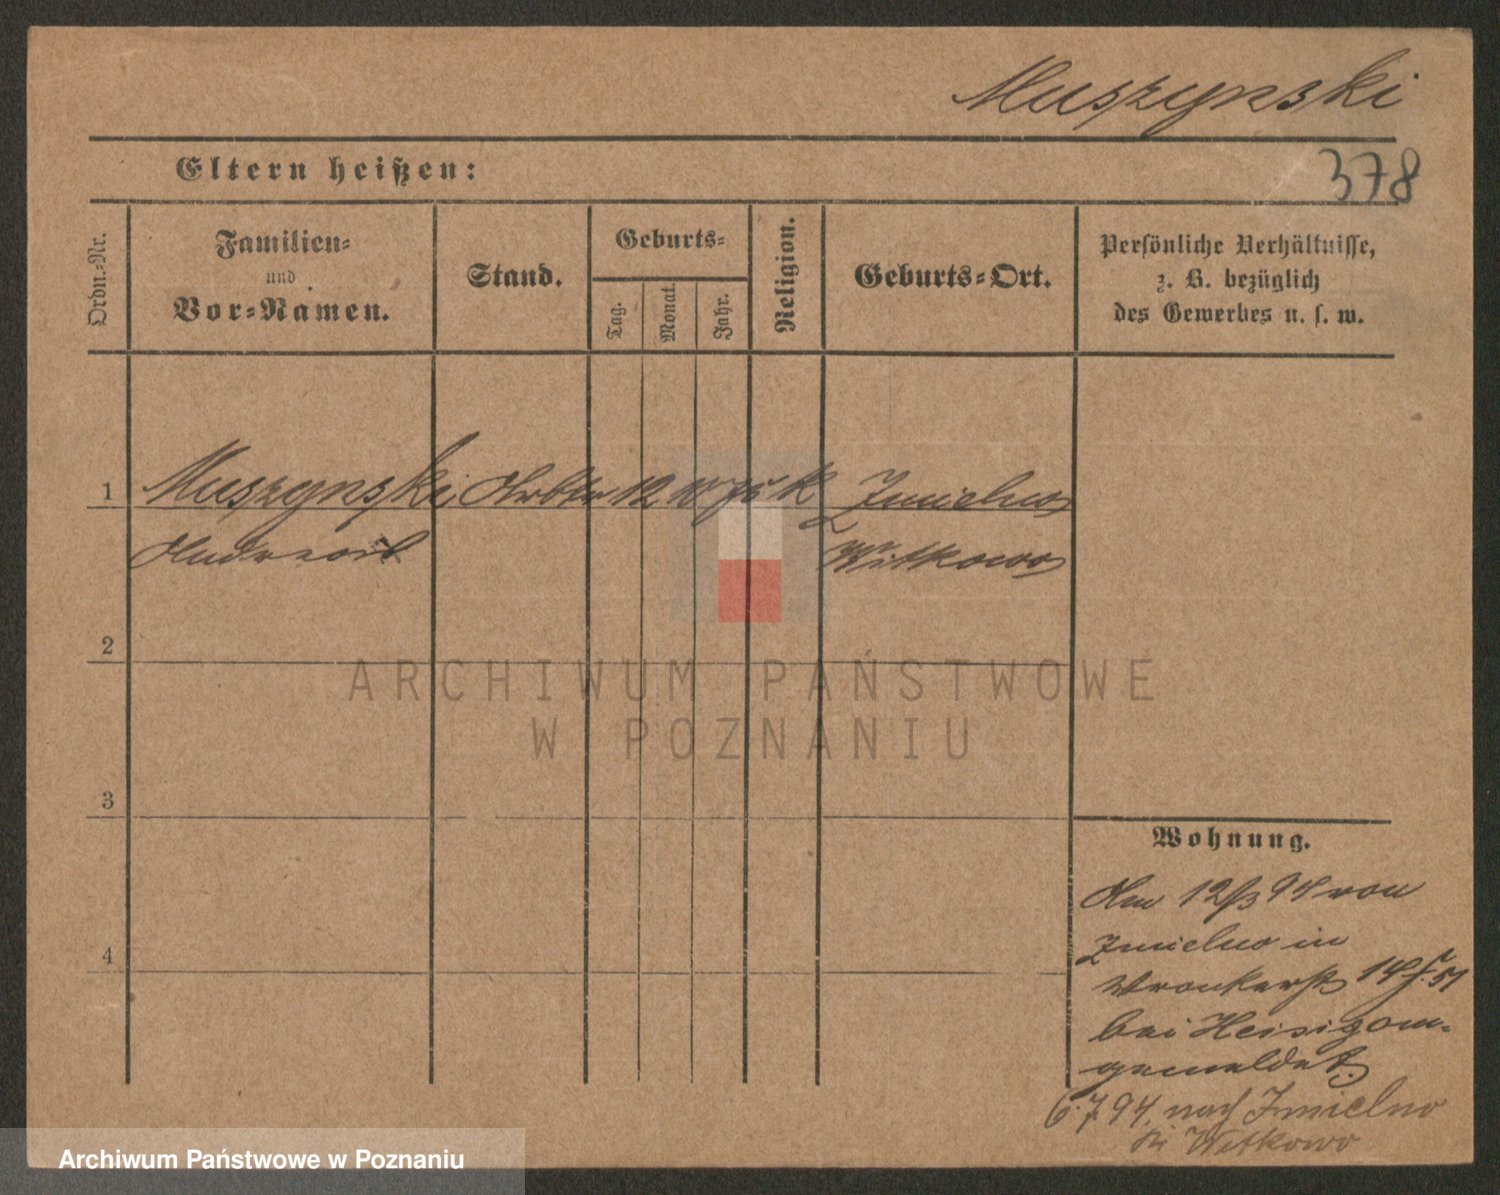 Muszynski
378
Eltern heißen:
Ordn.-Nr.
Familien-
und
Vor-Namen.
Stand.
Geburts-
Tag.
Monat.
Jahr.
Religion.
Geburts-Ort.
Persönliche Verhältnisse,
z. B. bezüglich
des Gewerbes u. s. w.
1
Muszynski Arbtr 12 10 75 K Imielno
Andreas Witkowo
2
ARCHIWUM PAŃSTWOWE
W POZNANIU
3
Wohnung.
Am 12/3 94 von
Imielno in
4
Wronkerstr 14
bei an-
gemeldet.
6.7.94. nach Imielno
Kr Witkowo
Archiwum Państwowe w Poznaniu